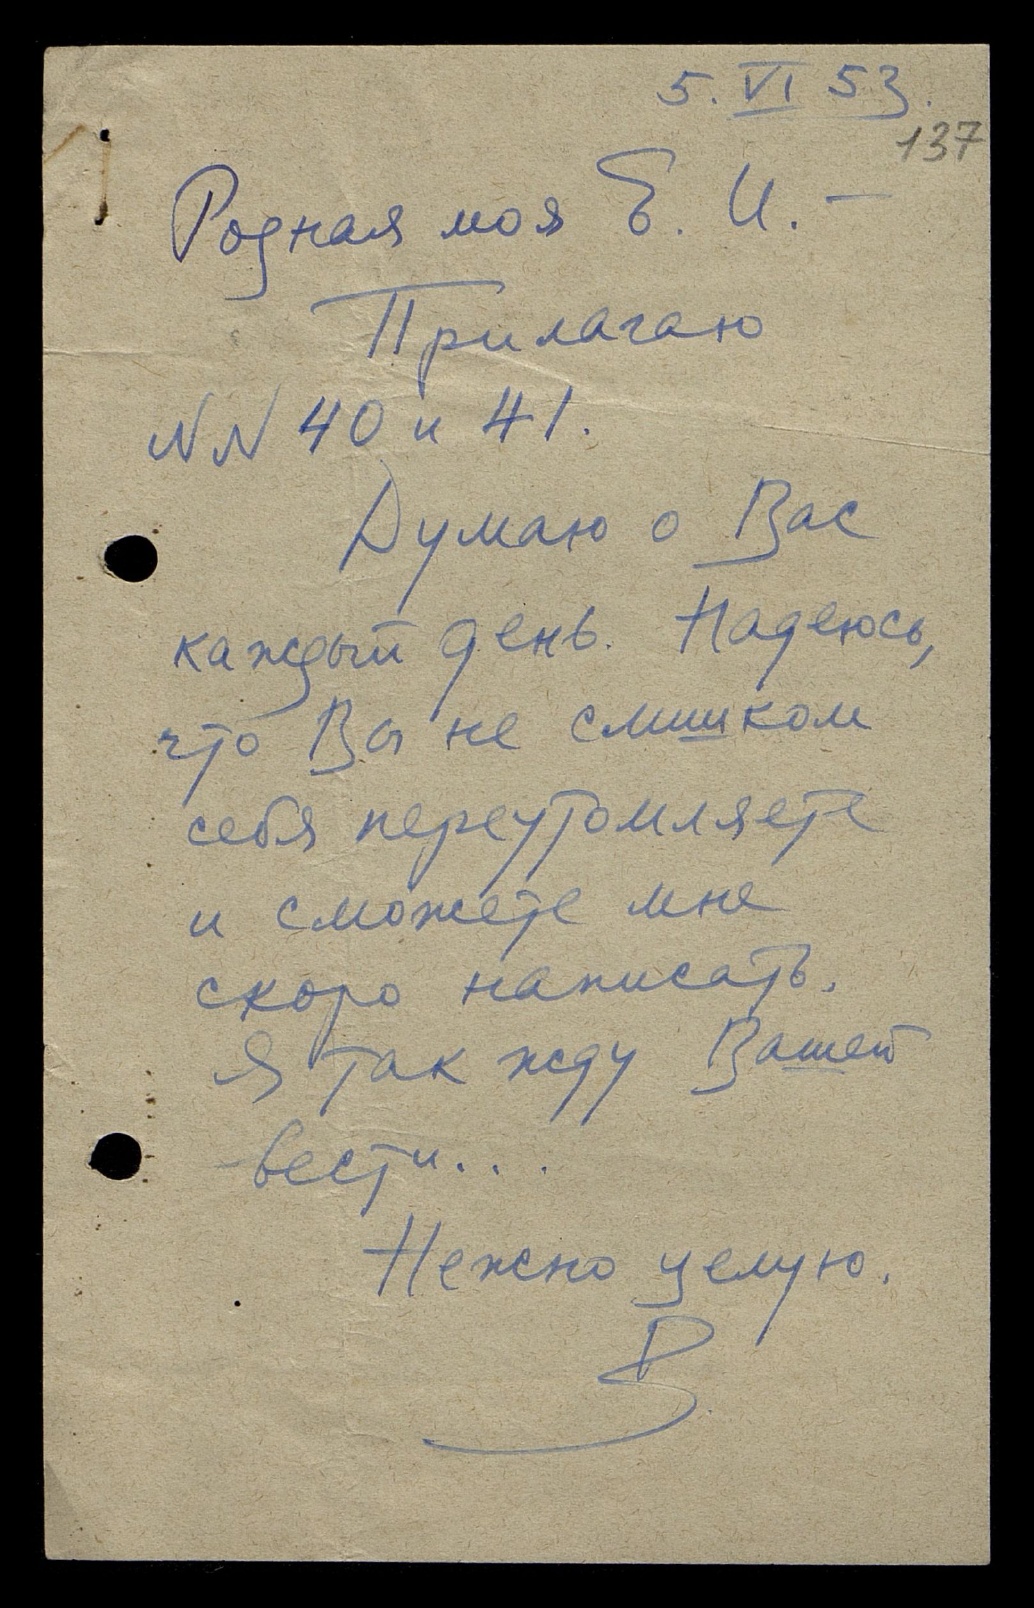 5. VI 53.
137
Родная моя Е. И. –
Прилагаю
NN 40 и 41.
Думаю о Вас
каждый день. Надеюсь,
что Вы не слишком
себя переутомляете
и сможете мне
скоро написать.
Я так жду Вашей
вести...
Нежно целую.
В